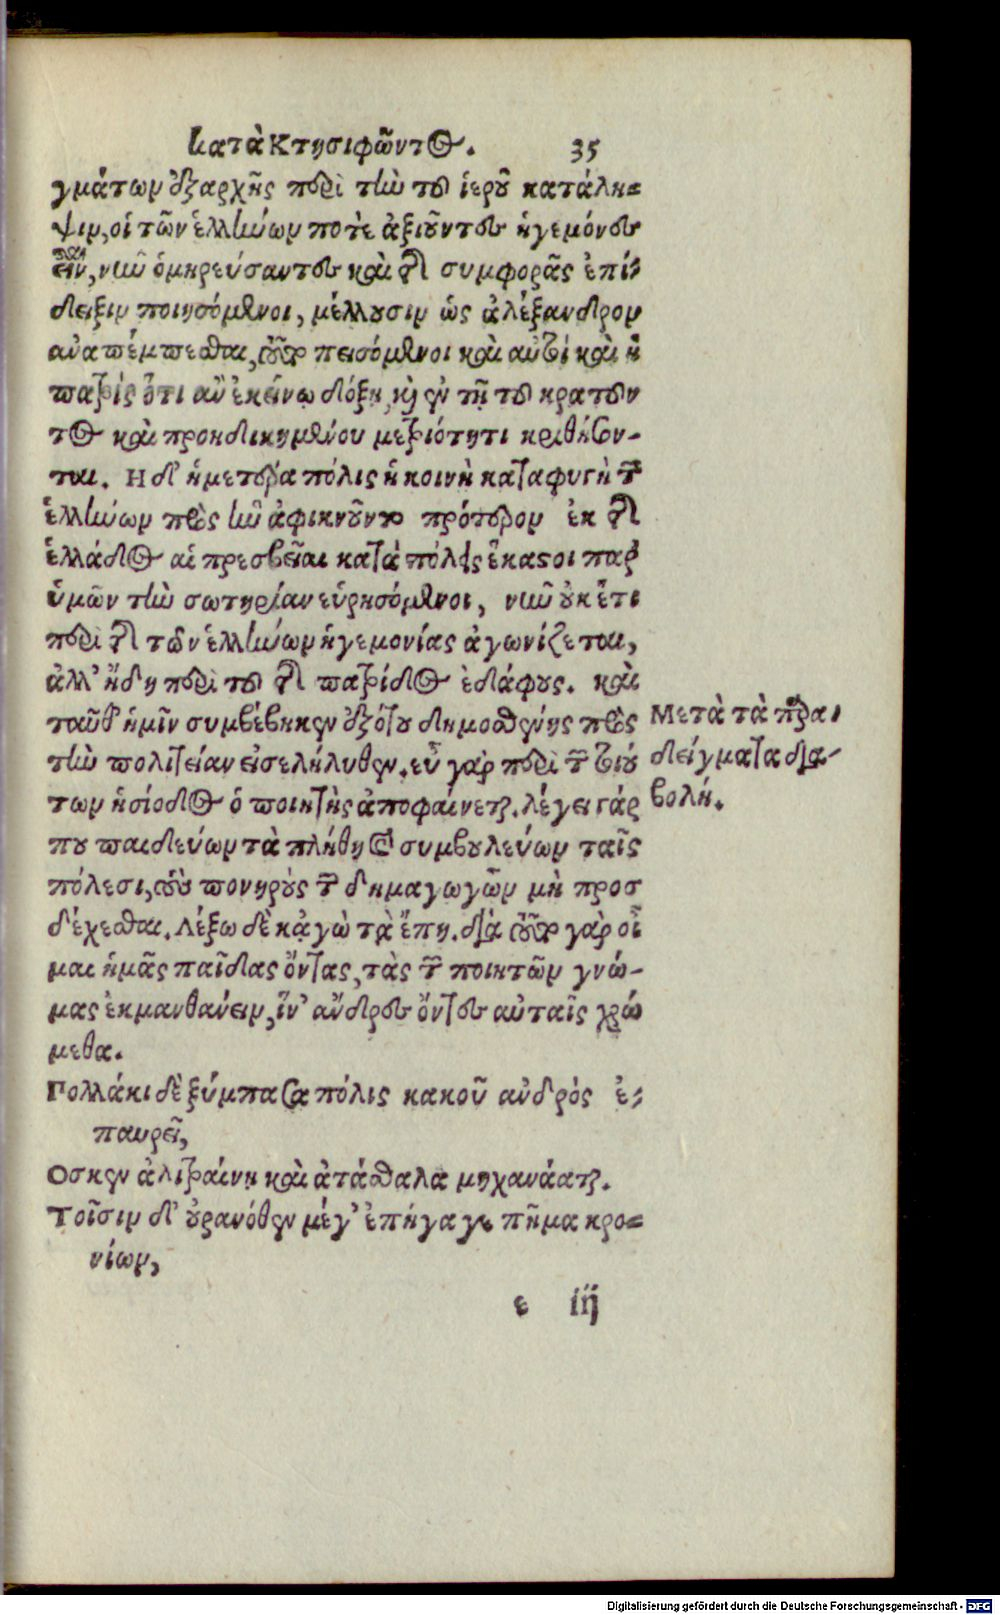 κατὰ Κτησιφῶντος. 35
γμάτων ἐξαρχῆς περὶ τὴν τοῦ ἱεροῦ κατάλη=
ψιν, οἱ τῶν ἑλλήνων ποτὲ ἀξιοῦντες ἡγεμόνες
εἶναι, νῦν ὁμηρεύσαντες καὶ τῆς συμφορᾶς ἐπί=
δειξιν ποιησόμενοι, μέλλουσιν ὡς ἀλέξανδρον
ἀναπέμπεσθαι, τοῦτο πεισόμενοι καὶ αὐτοὶ καὶ ἡ
πατρὶς ὅτι ἂν ἐκείνῳ δόξῃ, καὶ ἐν τῇ τοῦ κρατοῦν
τος καὶ προηδικημένου μετριότητι κριθήσον-
ται. Ἡ δ' ἡμετέρα πόλις ἡ κοινὴ καταφυγὴ τῶν
ἑλλήνων πρὸς ἣν ἀφικνοῦντο πρότερον ἐκ τῆς
ἑλλάδος αἱ πρεσβεῖαι κατὰ πόλεις ἕκαστοι παρ'
ὑμῶν τὴν σωτηρίαν εὑρησόμενοι, νῦν οὐκ ἔτι
περὶ τῆς τῶν ἑλλήνων ἡγεμονίας ἀγωνίζεται,
ἀλλ' ἤδη περὶ τοῦ τῆς πατρίδος ἐδάφους. καὶ
ταῦθ' ἡμῖν συμβέβηκεν ἐξότου δημοσθένης πρὸς
τὴν πολιτείαν εἰσελήλυθεν. εὖ γὰρ περὶ τῶν τοιού
των ἡσίοδος ὁ ποιητὴς ἀποφαίνεται. λέγει γάρ
που παιδεύων τὰ πλήθη καὶ συμβουλεύων ταῖς
πόλεσι, τοὺς πονηροὺς τῶν δημαγωγῶν μὴ προσ
δέχεσθαι. λέξω δὲ κἀγὼ τὰ ἔπη. διὰ τοῦτο γὰρ οἶ
μαι ἡμᾶς παῖδας ὄντας, τὰς τῶν ποιητῶν γνώ-
μας ἐκμανθάνειν, ἵν' ἄνδρες ὄντες αὐταῖς χρώ
μεθα.
Πολλάκι δὲ ξύμπασα πόλις κακοῦ ἀνδρὸς ἐ=
παυρεῖ,
Ὅς κεν ἀλιτραίνῃ καὶ ἀτάσθαλα μηχανάαται.
Τοῖσιν δ' οὐρανόθεν μέγ' ἐπήγαγε πῆμα κρο=
νίων,
ε iij
Μετὰ τὰ παρα=
δείγματα δια-
βολή.
Digitalisierung gefördert durch die Deutsche Forschungsgemeinschaft - DFG